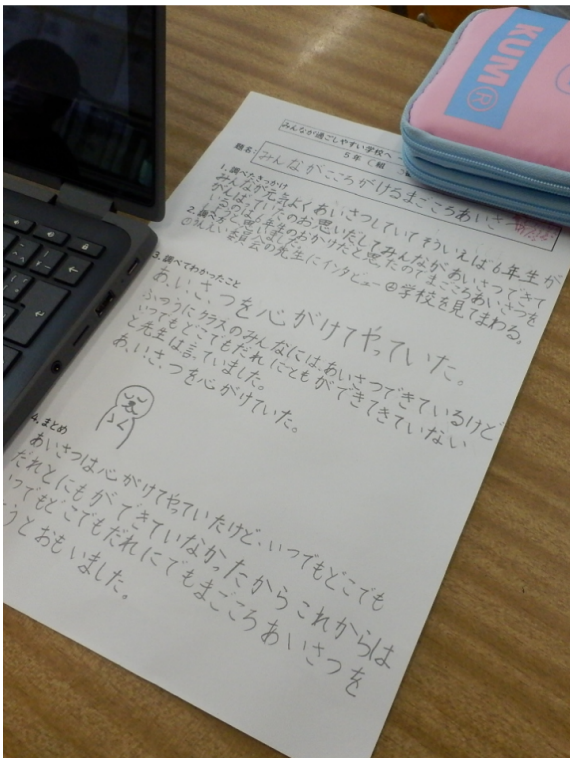 KUM®
みんなが過ごしやすい学校へ
5年
題名:
みんながこころがけるまごころあいさつ
1.調べたきっかけ
みんなが元気よくあいさつしていてそういえば6年生が
がんばっていたのお思いだしてみんながあいさつできて
いるのは6年生のおかげだと思たのでまごころあいさつを
2.調べ
委員会の先生にインタビュー ②学校を見てまわる。
3.調べてわかったこと
あ,い,さ,つを心がけてやっていた。
ふつうにクラスのみんなには,あいさつできているけど
いつでもどこでもだれにともができてきていない
と先生は言っていました。
あ,い,さ,つを心がけていた。
4.まとめ
あいさつは心がけてやっていたけど、いつでもどこでも
だれとにもができていなかったからこれからは
いつでもどこでもだれにでもまごころあいさつを
うとおもいました。